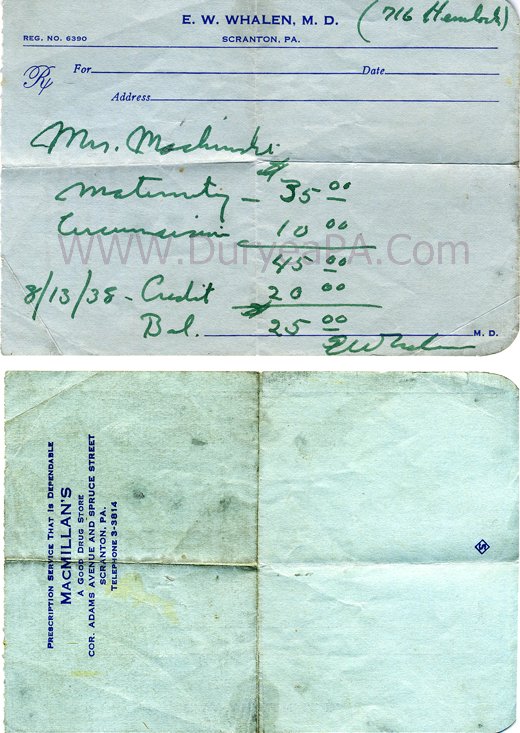 (716 Hemlock)
E. W. WHALEN, M. D.
REG. NO. 6390 SCRANTON, PA.
Rx For Date
Address
Mrs. Machinski
Maternity — $35.00
Circumcision 10.00
45.00
8/13/38 - Credit $20.00
Bal. 25.00 M. D.
EWhalen
WWW.DuryeaPA.Com
PRESCRIPTION SERVICE THAT IS DEPENDABLE
MACMILLAN'S
A GOOD DRUG STORE
COR. ADAMS AVENUE AND SPRUCE STREET
SCRANTON, PA.
TELEPHONE 3-3814